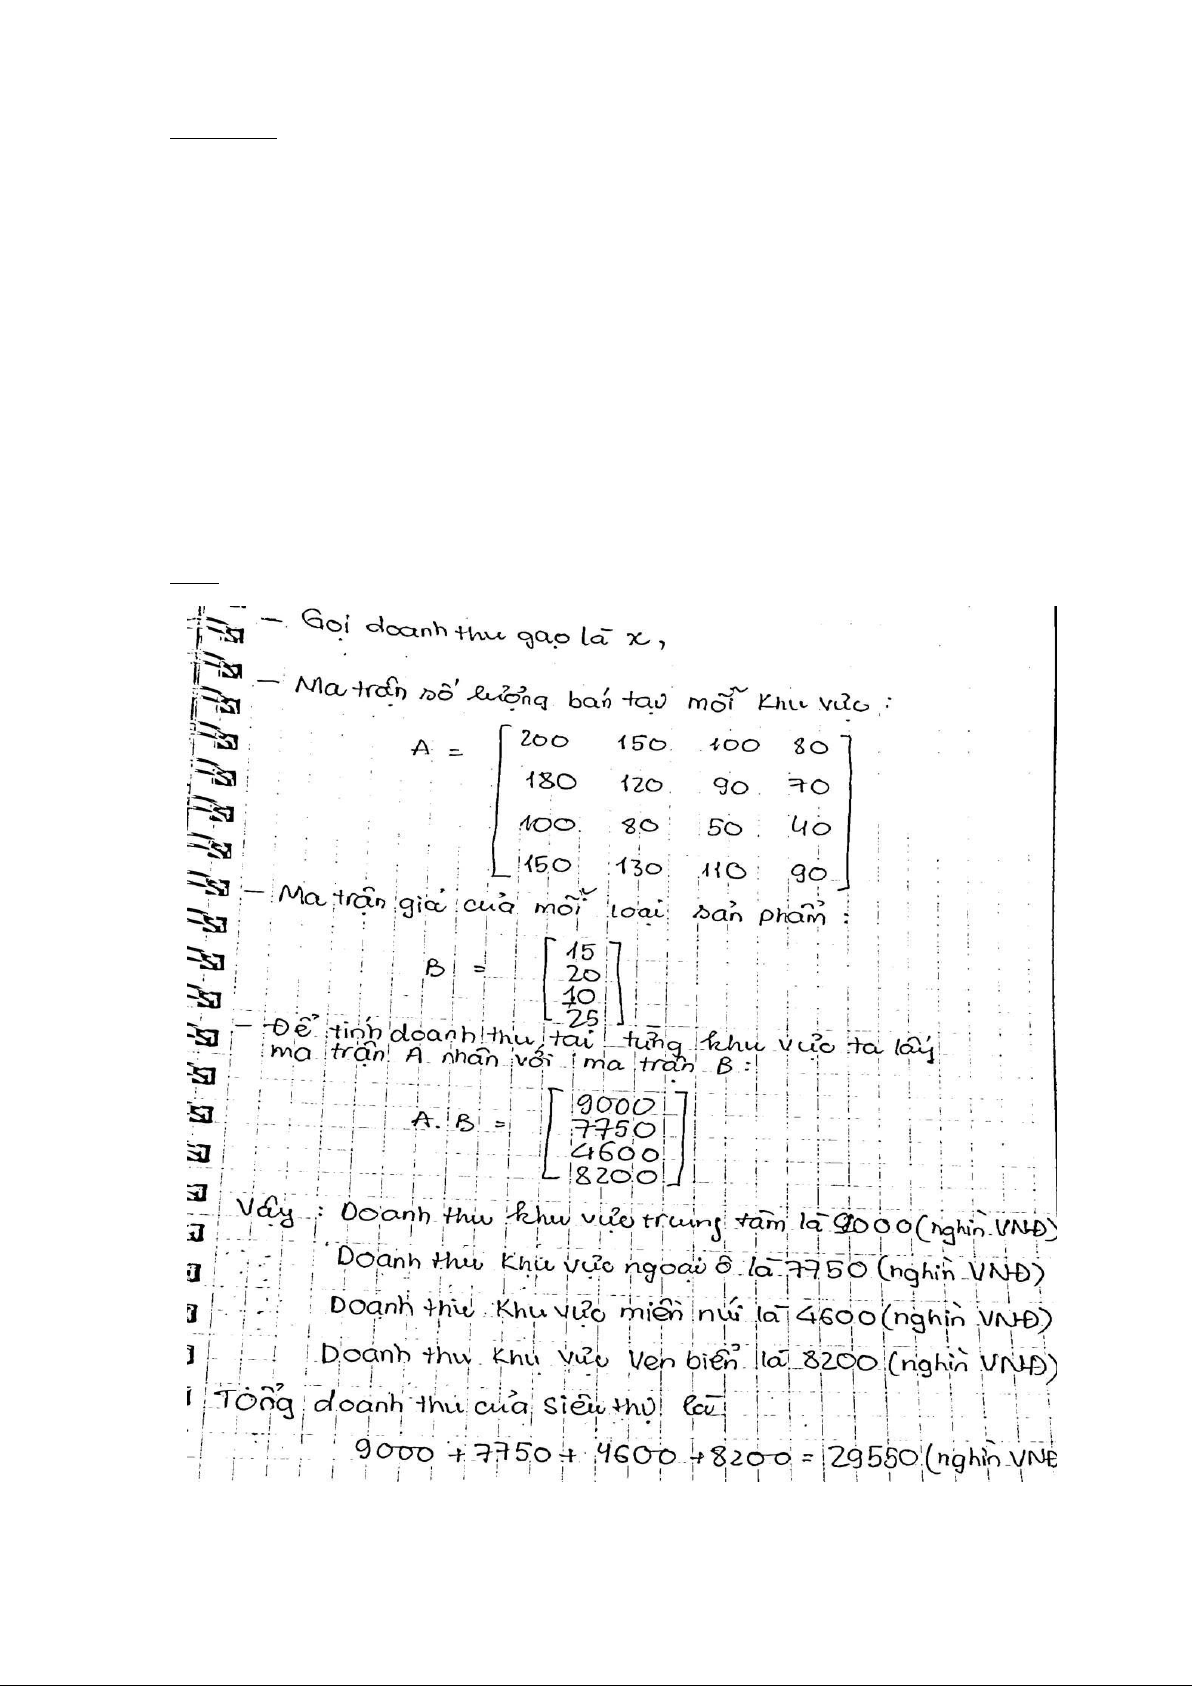 - Gọi doanh thu gạo là x,
- Ma trận số lượng bán tại mỗi khu vực :
A = [ 200 150 100 80
180 120 90 70
100 80 50 40
150 130 110 90 ]
- Ma trận giá của mỗi loại sản phẩm :
B = [ 15
20
10
25 ]
- Để tính doanh thu tại từng khu vực ta lấy
ma trận A nhân với ma trận B :
A. B = [ 9000
7750
4600
8200 ]
Vậy : Doanh thu khu vực trung tâm là 9000 (nghìn VNĐ)
Doanh thu khu vực ngoại ô là 7750 (nghìn VNĐ)
Doanh thu khu vực miền núi là 4600 (nghìn VNĐ)
Doanh thu khu vực ven biển là 8200 (nghìn VNĐ)
Tổng doanh thu của siêu thị là
9000 + 7750 + 4600 + 8200 = 29550 (nghìn VNĐ